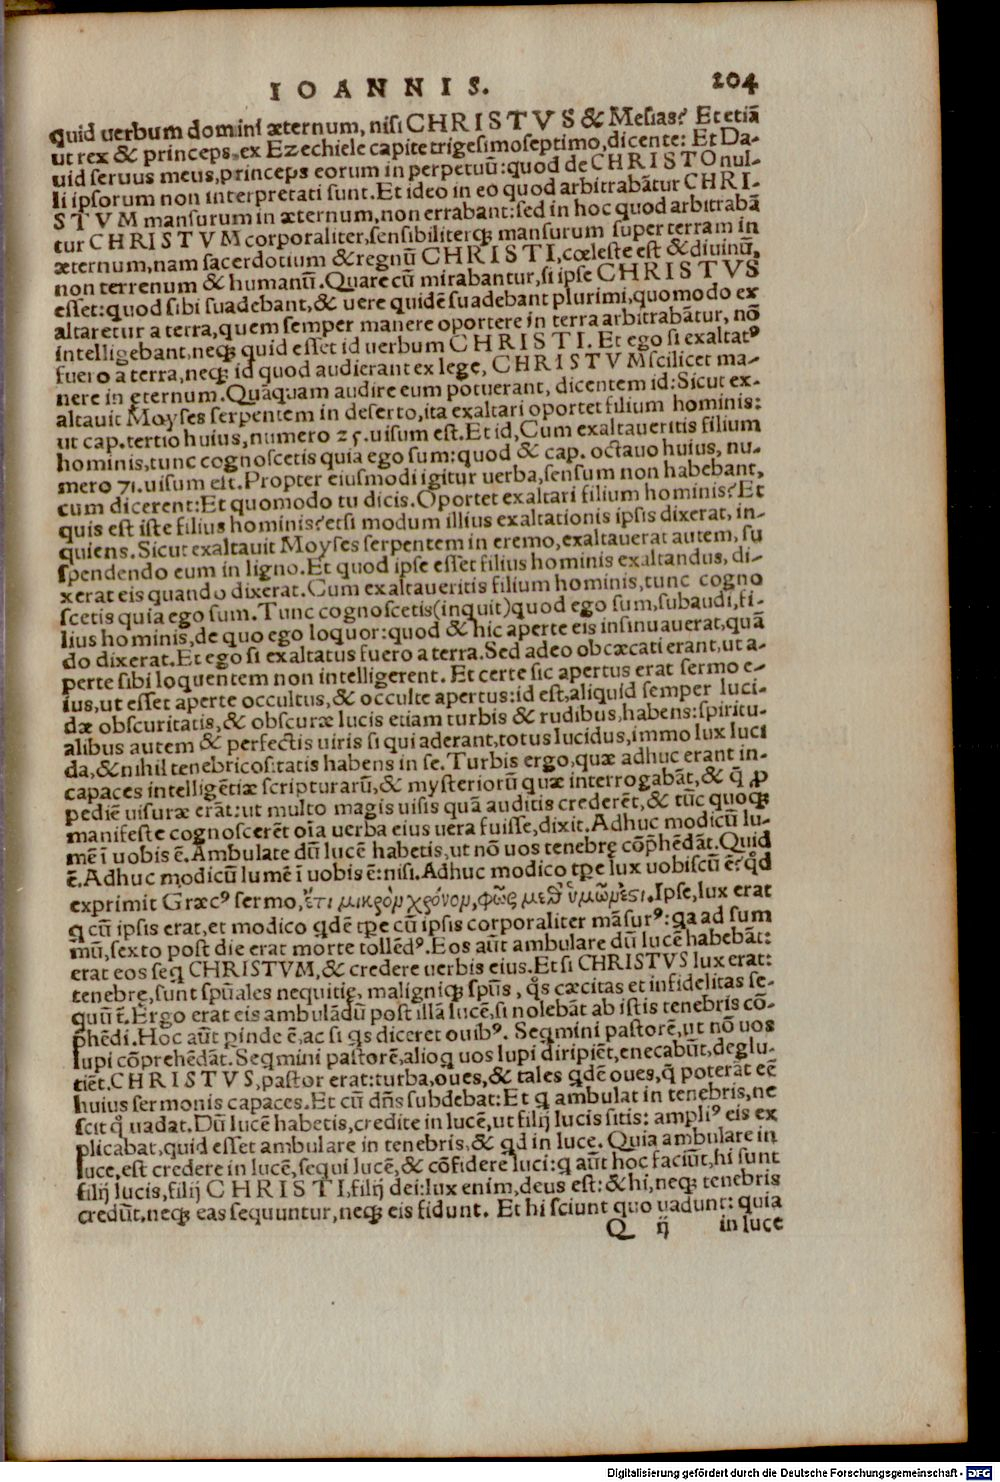 IOANNIS. 204
quid uerbum domini æternum, nisi CHRISTVS & Mesias? Et etiā
ut rex & princeps, ex Ezechiele capite trigesimoseptimo, dicente: Et Da-
uid seruus meus, princeps eorum in perpetuū: quod de CHRISTO nul-
li ipsorum non interpretati sunt. Et ideo in eo quod arbitrabātur CHRI-
STVM mansurum in æternum, non errabant: sed in hoc quod arbitrabā
tur CHRISTVM corporaliter, sensibiliterq; mansurum super terram in
æternum, nam sacerdotium & regnū CHRISTI, cœleste est & diuinū,
non terrenum & humanū. Quare cū mirabantur, si ipse CHRISTVS
esset: quod sibi suadebant, & uere quidē suadebant plurimi, quomodo ex
altaretur a terra, quem semper manere oportere in terra arbitrabātur, nō
intelligebant, neq; quid esset id uerbum CHRISTI. Et ego si exaltatꝰ
fuero a terra, neq; id quod audierant ex lege, CHRISTVM scilicet ma-
nere in ęternum. Quāquam audire eum potuerant, dicentem id: Sicut ex-
altauit Moyses serpentem in deserto, ita exaltari oportet filium hominis:
ut cap. tertio huius, numero 25. uisum est. Et id, Cum exaltaueritis filium
hominis, tunc cognoscetis quia ego sum: quod & cap. octauo huius, nu-
mero 71. uisum est. Propter eiusmodi igitur uerba, sensum non habebant,
cum dicerent: Et quomodo tu dicis. Oportet exaltari filium hominis? Et
quis est iste filius hominis? etsi modum illius exaltationis ipsis dixerat, in-
quiens. Sicut exaltauit Moyses serpentem in eremo, exaltauerat autem, su
spendendo eum in ligno. Et quod ipse esset filius hominis exaltandus, di-
xerat eis quando dixerat. Cum exaltaueritis filium hominis, tunc cogno
scetis quia ego sum. Tunc cognoscetis (inquit) quod ego sum, subaudi, fi-
lius hominis, de quo ego loquor: quod & hic aperte eis insinuauerat, quā
do dixerat. Et ego si exaltatus fuero a terra. Sed adeo obcæcati erant, ut a-
perte sibi loquentem non intelligerent. Et certe sic apertus erat sermo e-
ius, ut esset aperte occultus, & occulte apertus: id est, aliquid semper luci-
dæ obscuritatis, & obscuræ lucis etiam turbis & rudibus, habens: spiritu-
alibus autem & perfectis uiris si qui aderant, totus lucidus, immo lux luci
da, & nihil tenebricositatis habens in se. Turbis ergo, quæ adhuc erant in-
capaces intelligētiæ scripturarū, & mysteriorū quæ interrogabāt, & q̄ ꝓ
pediē uisuræ erāt: ut multo magis uisis quā auditis crederēt, & tūc quoq;
manifeste cognoscerēt oīa uerba eius uera fuisse, dixit. Adhuc modicū lu-
mē ī uobis ē. Ambulate dū lucē habetis, ut nō uos tenebrę cōp̄hēdāt. Quid
ē. Adhuc modicū lumē ī uobis ē: nisi. Adhuc modico tp̄e lux uobiscū ē? qd̓
exprimit Græcꝰ sermo, ἔτι μικρὸν χρόνον, φῶς μεθ ὑμῶν ἐςι. Ipse, lux erat
q cū ipsis erat, et modico qdē tp̄e cū ipsis corporaliter māsurꝰ: qa ad sum
mū, sexto post die erat morte tollēdꝰ. Eos aūt ambulare dū lucē habebāt:
erat eos seq CHRISTVM, & credere uerbis eius. Et si CHRISTVS lux erat:
tenebrę, sunt spūales nequitię, maligniq; spūs, qͦs cæcitas et infidelitas se-
quūt̄. Ergo erat eis ambulādū post illā lucē, si nolebāt ab istis tenebris cō-
p̄hēdi. Hoc aūt ꝑinde ē, ac si qs diceret ouibꝰ. Seqmini pastorē, ut nō uos
lupi cōprehēdāt. Seqmini pastorē, alioq uos lupi diripiēt, enecabūt, deglu-
tiēt. CHRISTVS, pastor erat: turba, oues, & tales qdē oues, q̄ poterāt eē
huius sermonis capaces. Et cū dn̄s subdebat: Et q ambulat in tenebris, ne
scit qͦ uadat. Dū lucē habetis, credite in lucē, ut filij lucis sitis: ampliꝰ eis ex
plicabat, quid esset ambulare in tenebris, & qd in luce. Quia ambulare in
luce, est credere in lucē, sequi lucē, & cōfidere luci: q aūt hoc faciūt, hi sunt
filij lucis, filij CHRISTI, filij dei: lux enim, deus est: & hi, neq; tenebris
credūt, neq; eas sequuntur, neq; eis fidunt. Et hi sciunt quo uadunt: quia
Q ij in luce
Digitalisierung gefördert durch die Deutsche Forschungsgemeinschaft - DFG